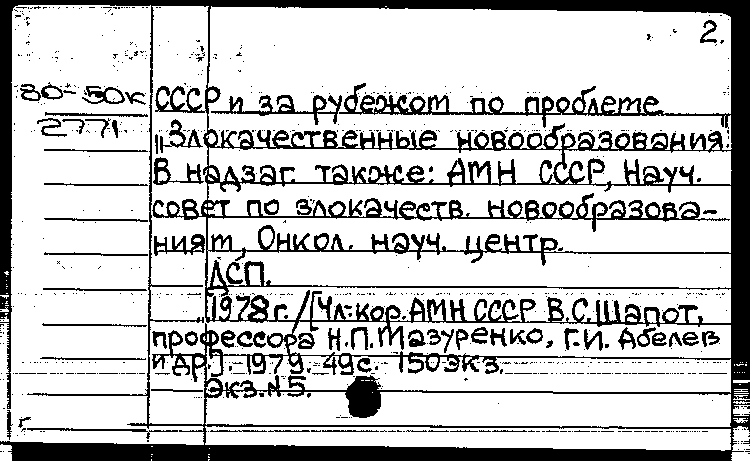 2.
80-50к СССР и за рубежом по проблеме
2771
"Злокачественные новообразования"
В надзаг. также: АМН СССР, Науч.
совет по злокачеств. новообразова-
ниям, Онкол. науч. центр.
ДСП.
...1978 г. /[Чл.-кор. АМН СССР В.С. Шапот,
профессора Н.П. Мазуренко, Г.И. Абелев
и др.]. 1979. 49 с. 150 экз.
Экз. N 5.